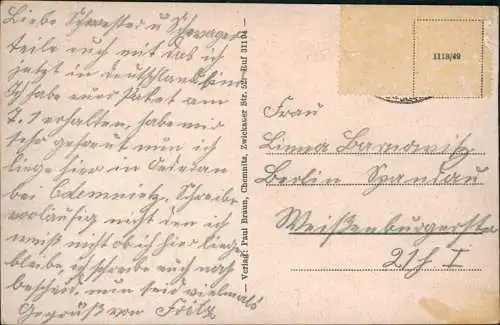 Liebe Schwester u Schwager
teile euch mit das ich
jetzt in Deutschland bin
Ich habe euer Paket am
7.1 erhalten, habe mir
sehr gefreut nun ich
liege hier in Oederan
bei Chemnitz, Schreibe
vorläufig nicht den ich
weiß nicht ob ich hier liegen
bleibe, ich schreibe euch noch
bescheid, nun seid vielmals
Gegrüß von Fritz
— Verlag: Paul Braun, Chemnitz, Zwickauer Str. 52, Ruf 31104 —
1118/49
Frau
Barnowitz
Berlin Spandau
Weißenburgerstr
21 I